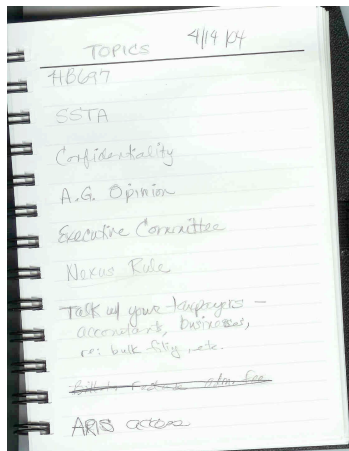 TOPICS 4/19/04
HB697
SSTA
Confidentiality
A.G. Opinion
Executive Committee
Nexus Rule
Talk w/ your taxpayers -
accountants, businesses,
re: bulk filing, etc.
ARIS access